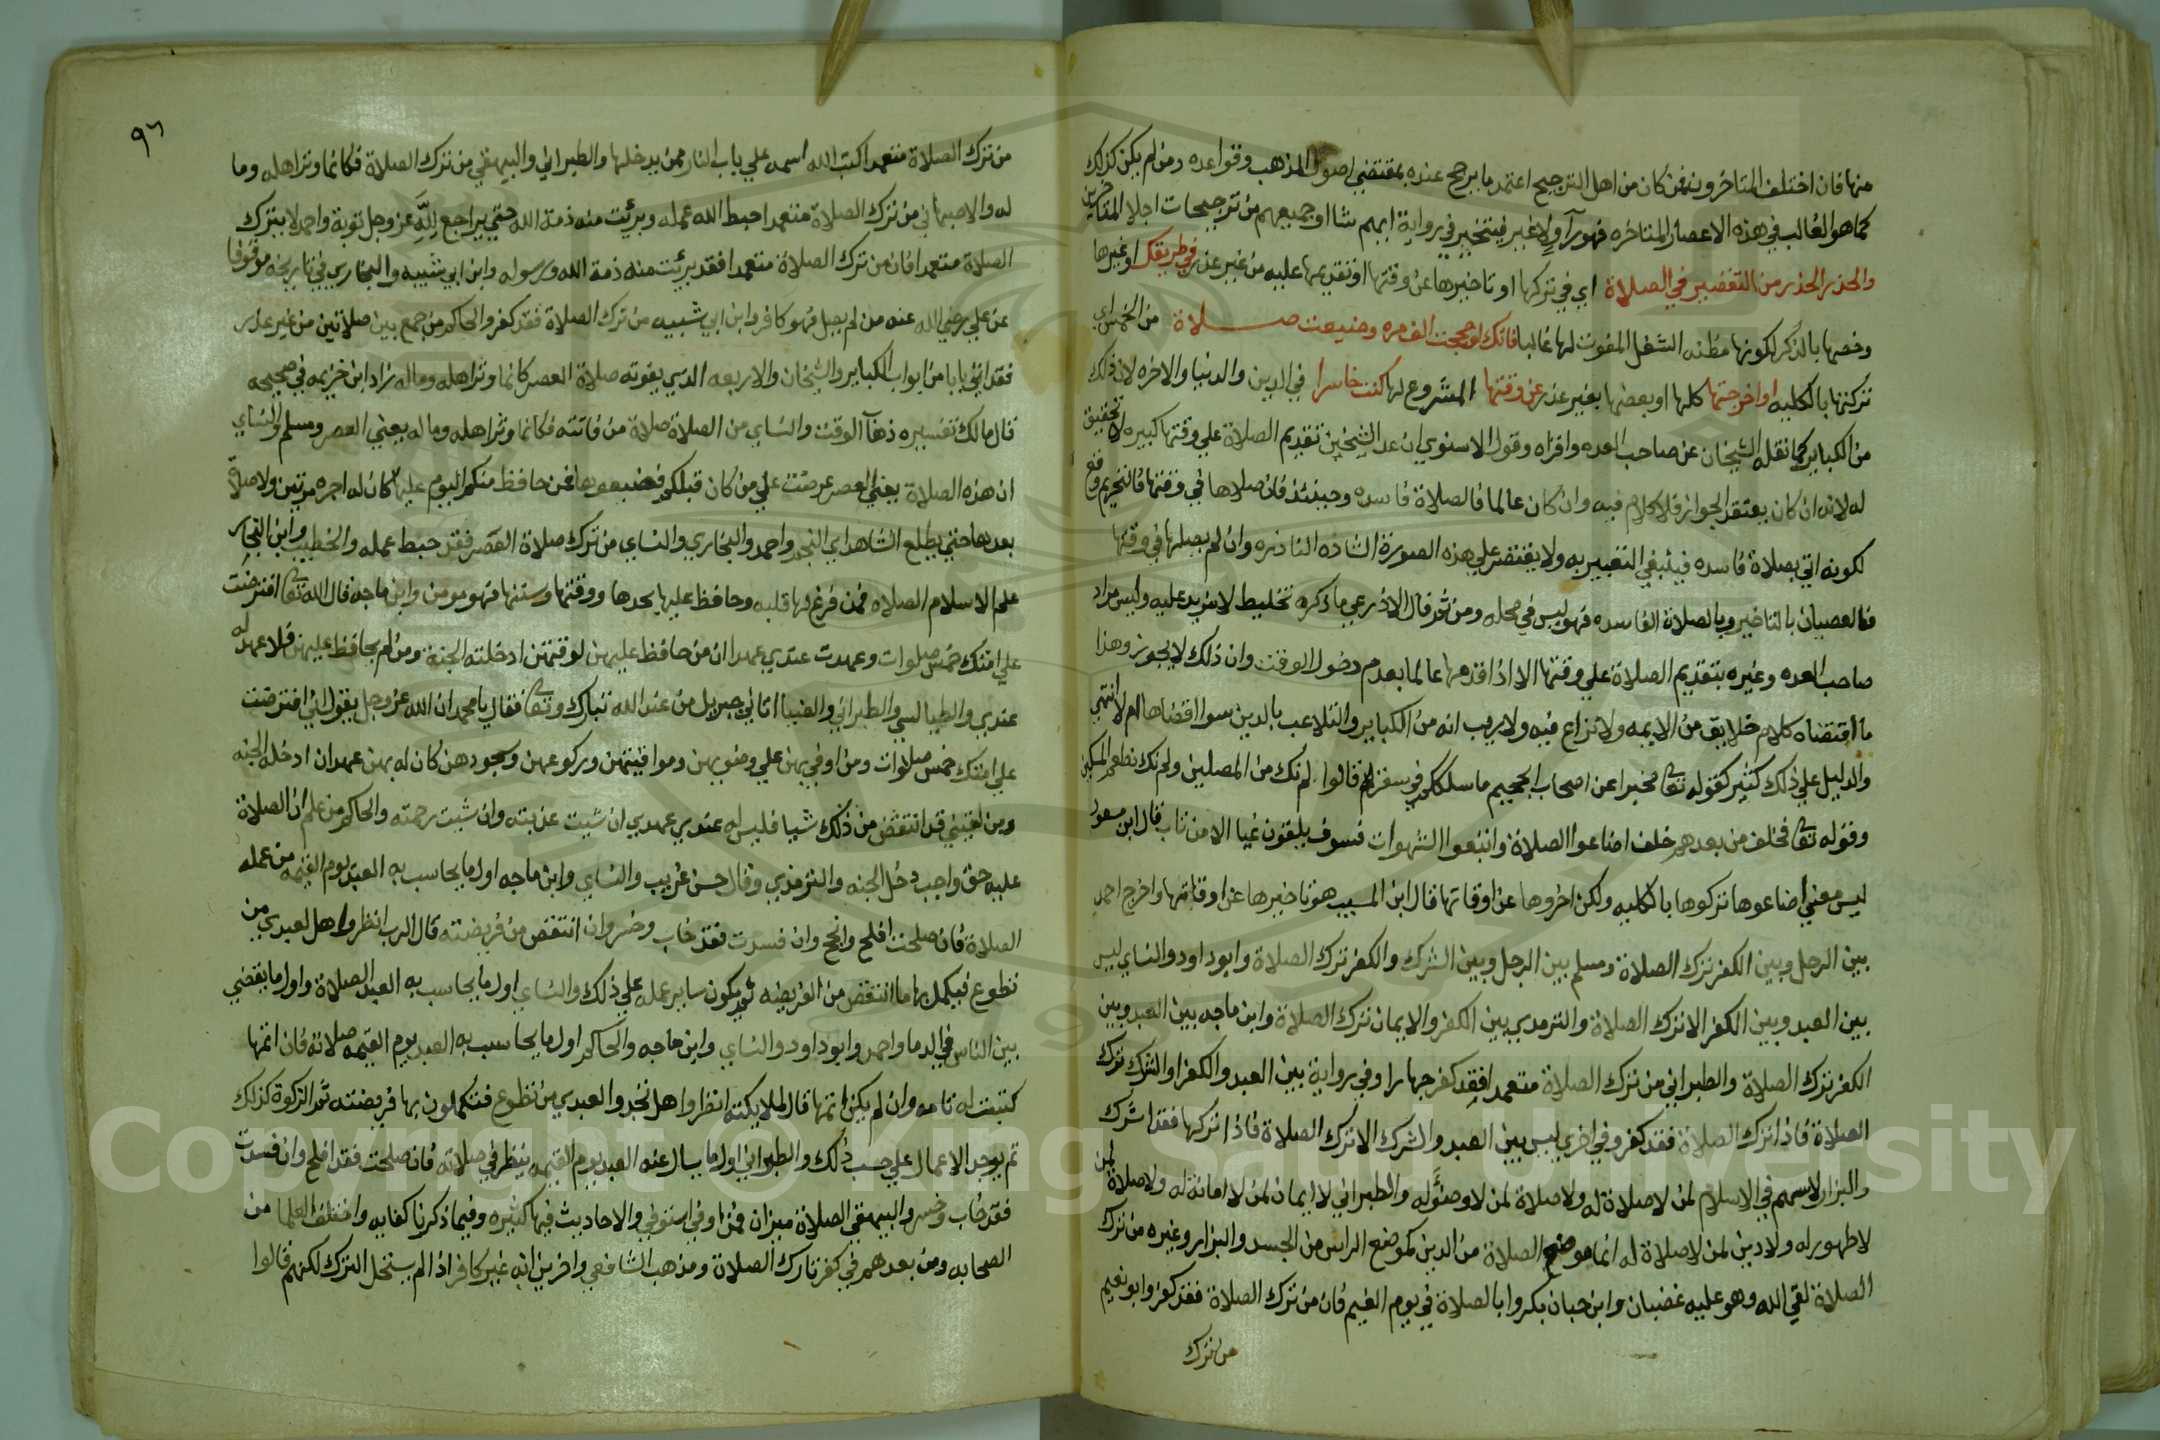 منها فان اختلف المتاخرون فمن كان من اهل الترجيح اعتمد ما يرجح عنده بمقتضي اصول المذهب وقواعده ومن لم يكن كذلك
كما هو الغالب في هذه الاعصار المتاخره فهو رآ ولا غير فيتخير في رواية ايهم شا او جميعهم من ترجيحات اجلا المفاخرين
والحذر الحذر من التقصير في الصلاة اي في تركها او تاخيرها عن وقتها او تقديمها عليه من غير عذر في طريقك او غيرها
وخصها بالذكر لكونها مظنه الشغل المفوت لها غالبا فانك لو حججت الف مره وضيعت صلاة من الخمس اي
تركتها بالكليه او اخرجتها كلها او بعضها بغير عذر عن وقتها المشروع لها كنت خاسرا في الدين والدنيا والاخره لان ذلك
من الكباير كما نقله الشيخان عن صاحب العده واقراه وقول الاسنوي ان عد الشيخين تقديم الصلاة علي وقتها كبيره لا تحقيق
له لانه ان كان يعتقد الجواز فلا كلام فيه وان كان عالما فالصلاة فاسده وحينئذ فان صلاها في وقتها فالتحريم وقع
لكونه اتي بصلاة فاسده فينبغي التعبير به ولا يقتصر علي هذه الصورة الشاذه النادره وان لم يصلها في وقتها
فالعصيان بالتاخير وبالصلاة الفاسده فهو ليس في محله ومن ثم قال الاذرعي ما ذكره تخليط لا مزيد عليه وليس مراد
صاحب العده وغيره بتقديم الصلاة علي وقتها الا اذا قدمها عالما بعدم دخول الوقت وان ذلك لا يجوز وهذا
ما اقتضاه كلام خلايق من الايمه ولا نزاع فيه ولا ريب انه من الكباير والتلاعب بالدين سوا اقضاها ام لا انتهي
والدليل علي ذلك كثير كقوله تعا مخبرا عن اصحاب الجحيم ما سلككم في سقر قالوا لم نك من المصلين ولم نك نطعم المسكين
وقوله تعا فخلف من بعدهم خلف اضاعوا الصلاة واتبعوا الشهوات فسوف يلقون غيا الا من تاب قال ابن مسعود
ليس معني اضاعوها تركوها بالكليه ولكن اخروها عن اوقاتها قال ابن المسيب هو تاخيرها عن اوقاتها واخرج احمد
بين الرجل وبين الكفر ترك الصلاة ومسلم بين الرجل وبين الشرك والكفر ترك الصلاة وابو داود والنساي ليس
بين العبد وبين الكفر الا ترك الصلاة والترمذي بين الكفر والايمان ترك الصلاة وابن ماجه بين العبد وبين
الكفر ترك الصلاة والطبراني من ترك الصلاة متعمدا فقد كفر جهارا وفي رواية بين العبد والكفر او الشرك ترك
الصلاة فاذا ترك الصلاة فقد كفر وفي اخري ليس بين العبد والشرك الا ترك الصلاة فاذا تركها فقد اشرك
والبزار لا سهم في الاسلام لمن لا صلاة له ولا صلاة لمن لا وضوء له والطبراني لا ايمان لمن لا امانة له ولا صلاة لمن
لا طهور له ولا دين لمن لا صلاة له انما موضع الصلاة من الدين كموضع الراس من الجسد والبزار وغيره من ترك
الصلاة لقي الله وهو عليه غضبان وابن حبان بكروا بالصلاة في يوم الغيم فان من ترك الصلاة فقد كفر وابو نعيم
من ترك
٩٦
من ترك الصلاة متعمدا كتب الله اسمه علي باب النار ممن يدخلها والطبراني والبيهقي من ترك الصلاة فكانما وتر اهله وما
له والاصبهاني من ترك الصلاة متعمدا احبط الله عمله وبرئت منه ذمة الله حتي يراجع لله عز وجل توبة واحمد لا يترك
الصلاة متعمدا فان من ترك الصلاة متعمدا فقد برئت منه ذمة الله ورسوله وابن ابي شيبه والبخاري في تاريخه موقوفا
عن علي رضي الله عنه من لم يصل فهو كافر وابن ابي شيبه من ترك الصلاة فقد كفر والحاكم من جمع بين صلاتين من غير عذر
فقد اتي بابا من ابواب الكباير والشيخان والاربعه الذي يفوته صلاة العصر كانما وتر اهله وماله زاد ابن خزيمه في صحيحه
قال مالك تفسيره ذهاب الوقت والنساي من الصلاة صلاة من فاتته فكانما وتر اهله وماله يعني العصر ومسلم والنساي
ان هذه الصلاة يعني العصر عرضت علي من كان قبلكم فضيعوها فمن حافظ منكم اليوم عليها كان له اجره مرتين ولا صلاة
بعدها حتي يطلع الشاهد اي النجم واحمد والبخاري والنساي من ترك صلاة العصر فقد حبط عمله والخطيب وابن النجار
علم الاسلام الصلاه فمن فرغ لها قلبه وحافظ عليها بحدها ووقتها وسننها فهو مومن وابن ماجه قال الله تعا افترضت
علي امتك خمس صلوات وعهدت عندي عهدا ان من حافظ عليهن لوقتهن ادخلته الجنة ومن لم يحافظ عليهن فلا عهد له
عندي والطيالسي والطبراني والضيا اتاني جبريل من عند الله تبارك وتعا فقال يا محمد ان الله عز وجل يقول اني افترضت
علي امتك خمس صلوات ومن اوفي بهن علي وضوبهن ومواقيتهن وركوعهن وسجودهن كان له بهن عهد ان ادخله الجنه
ومن لقيني قد انتقص من ذلك شيا فليس له عندي عهدي ان شيت عذبته وان شيت رحمته والحاكم من علم ان الصلاة
عليه حق واجب دخل الجنه والترمذي وقال حسن غريب والنساي وابن ماجه اول ما يحاسب به العبد يوم القيمه من عمله
الصلاة فان صلحت افلح وانجح وان فسدت فقد خاب وخسر وان انتقص من فريضته قال الرب انظروا هل لعبدي من
تطوع فيكمل بها ما انتقص من الفريضه ثم يكون ساير عمله علي ذلك والنساي اول ما يحاسب به العبد الصلاة واول ما يقضي
بين الناس في الدما واحمد وابو داود والنساي وابن ماجه والحاكم اول ما يحاسب به العبد يوم القيمه صلاته فان اتمها
كتبت له تامه وان لم يكن اتمها قال لملايكته انظروا هل تجدوا لعبدي من تطوع فتكملون بها فريضته ثم الزكوة كذلك
ثم يوخذ الاعمال علي حسب ذلك والطبراني اول ما يسال عنه العبد يوم القيمه ينظر في صلاته فان صلحت فقد افلح وان فسدت
فقد خاب وخسر والبيهقي الصلاة ميزان فمن اوفي استوفي والاحاديث فيها كثيره وفيما ذكرنا كفايه واختلف العلما من
الصحابه ومن بعدهم في كفر تارك الصلاة ومذهب الشافعي واخرين انه غير كافر اذا لم يستحل الترك لكنهم قالوا
Copyright © King Saud University